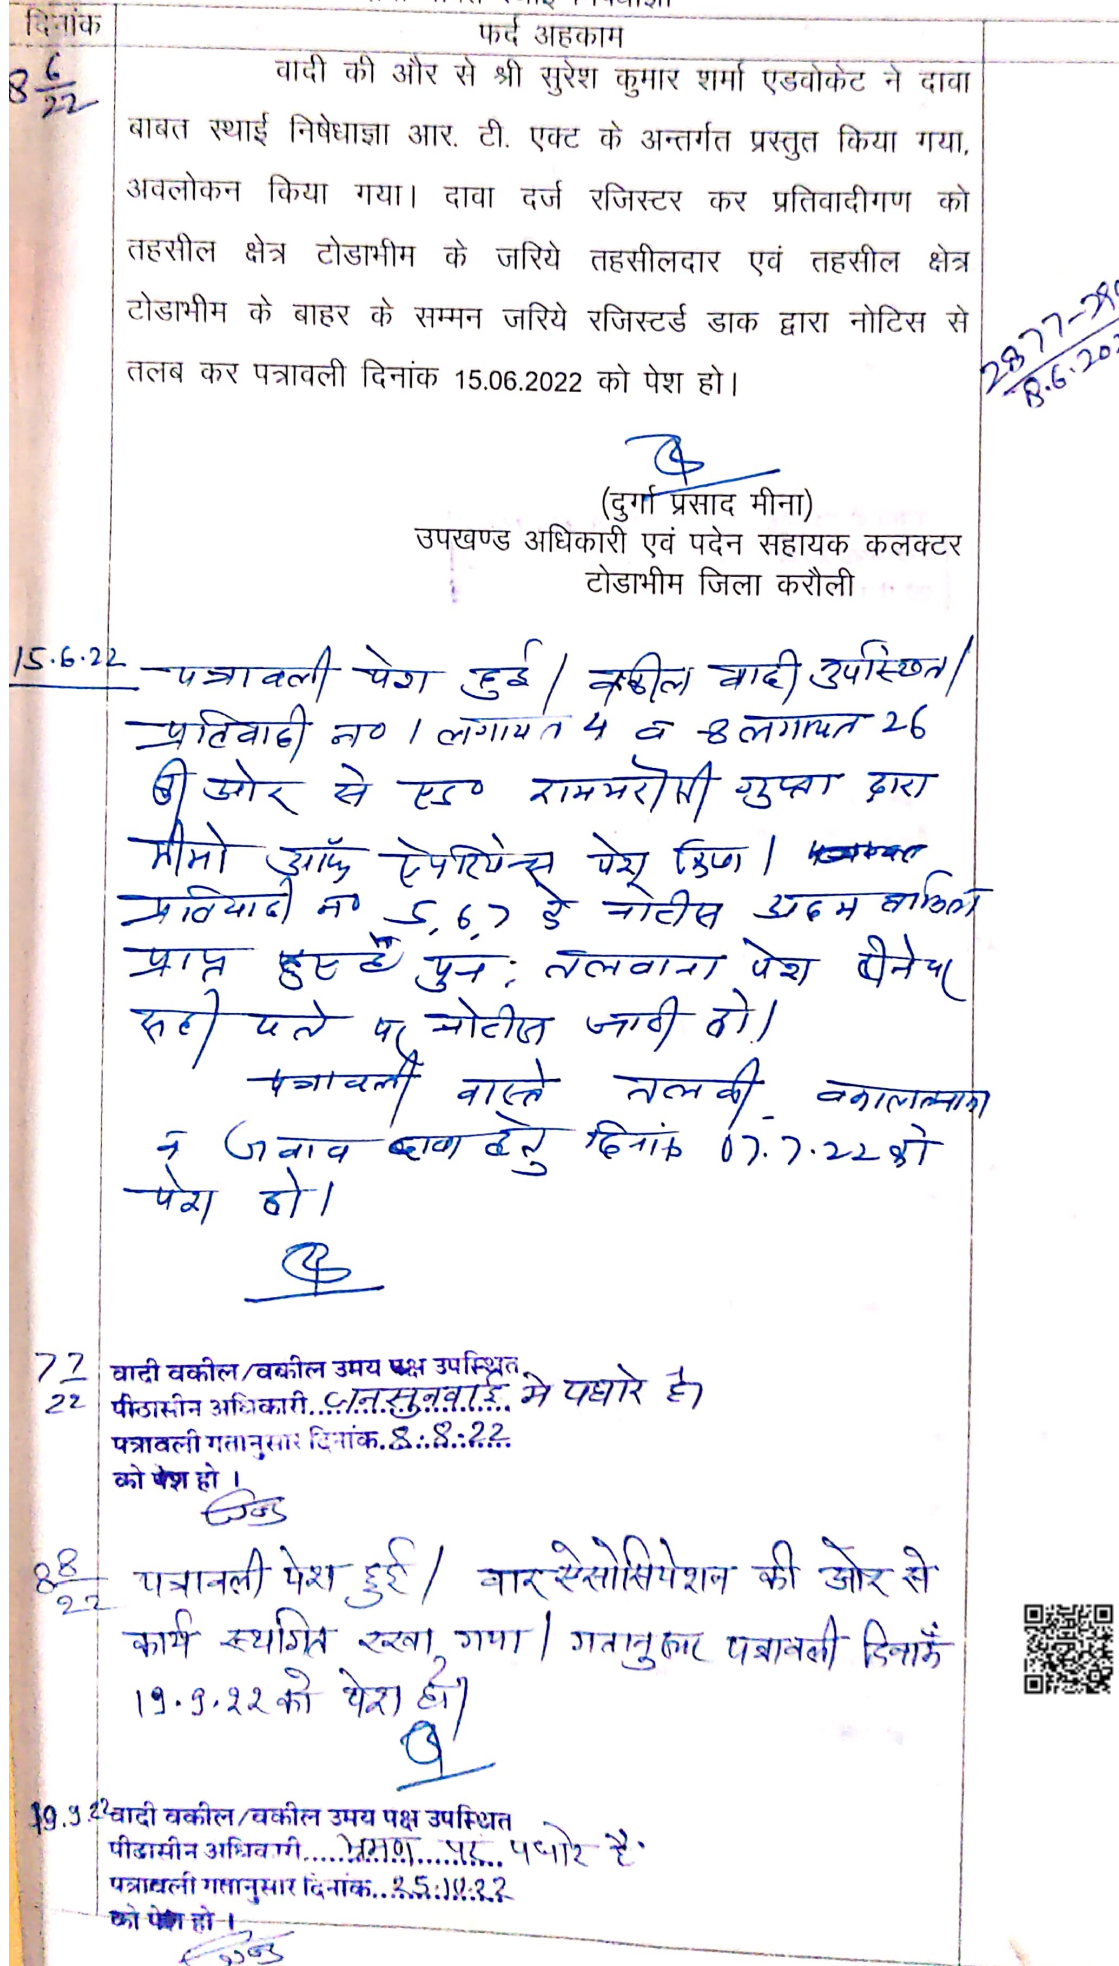 दिनांक
फर्द अहकाम
8 6/22
वादी की और से श्री सुरेश कुमार शर्मा एडवोकेट ने दावा
बाबत स्थाई निषेधाज्ञा आर. टी. एक्ट के अन्तर्गत प्रस्तुत किया गया,
अवलोकन किया गया। दावा दर्ज रजिस्टर कर प्रतिवादीगण को
तहसील क्षेत्र टोडाभीम के जरिये तहसीलदार एवं तहसील क्षेत्र
टोडाभीम के बाहर के सम्मन जरिये रजिस्टर्ड डाक द्वारा नोटिस से
तलब कर पत्रावली दिनांक 15.06.2022 को पेश हो।
2877-
8.6.20
(दुर्गा प्रसाद मीना)
उपखण्ड अधिकारी एवं पदेन सहायक कलक्टर
टोडाभीम जिला करौली
15.6.22 पत्रावली पेश हुई। वकील वादी उपस्थित।
प्रतिवादी न० 1 लगायत 4 व 8 लगायत 26
की ओर से एड० रामभरोसी गुप्ता द्वारा
मीमो ऑफ ऐपरियेन्स पेश किया।
प्रतिवादी न० 5,6,7 के नोटीस अदम तामिल
प्राप्त हुए है पुन: तलवाना पेश होने पर
सही पते पर नोटीस जारी हो।
पत्रावली वास्ते तलबी, वकालतनामा
व जवाब दावा हेतु दिनांक 07.7.22 को
पेश हो।
7 7/22 वादी वकील/वकील उभय पक्ष उपस्थित
पीठासीन अधिकारी जनसुनवाई में पधारे है।
पत्रावली गतानुसार दिनांक 8.8.22
को पेश हो।
8 8/22 पत्रावली पेश हुई। बार ऐसोसियेशन की ओर से
कार्य स्थगित रखा गया। गतानुसार पत्रावली दिनांक
19.9.22 को पेश हो।
19.9.22 वादी वकील/वकील उभय पक्ष उपस्थित
पीठासीन अधिकारी भ्रमण पर पधारे है.
पत्रावली गतानुसार दिनांक 25.10.22
को पेश हो।